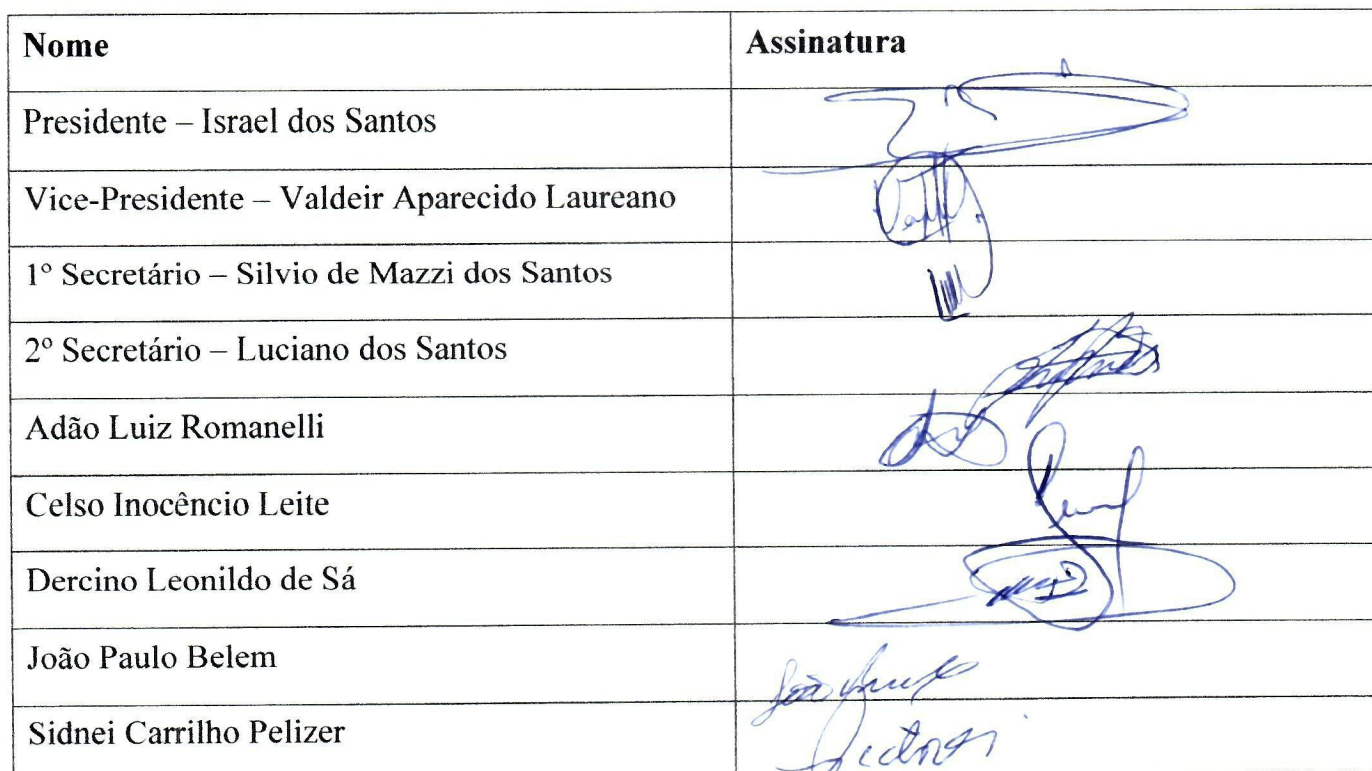 Nome Assinatura
Presidente – Israel dos Santos
Vice-Presidente – Valdeir Aparecido Laureano
1º Secretário – Silvio de Mazzi dos Santos
2º Secretário – Luciano dos Santos
Adão Luiz Romanelli
Celso Inocêncio Leite
Dercino Leonildo de Sá
João Paulo Belem
Sidnei Carrilho Pelizer